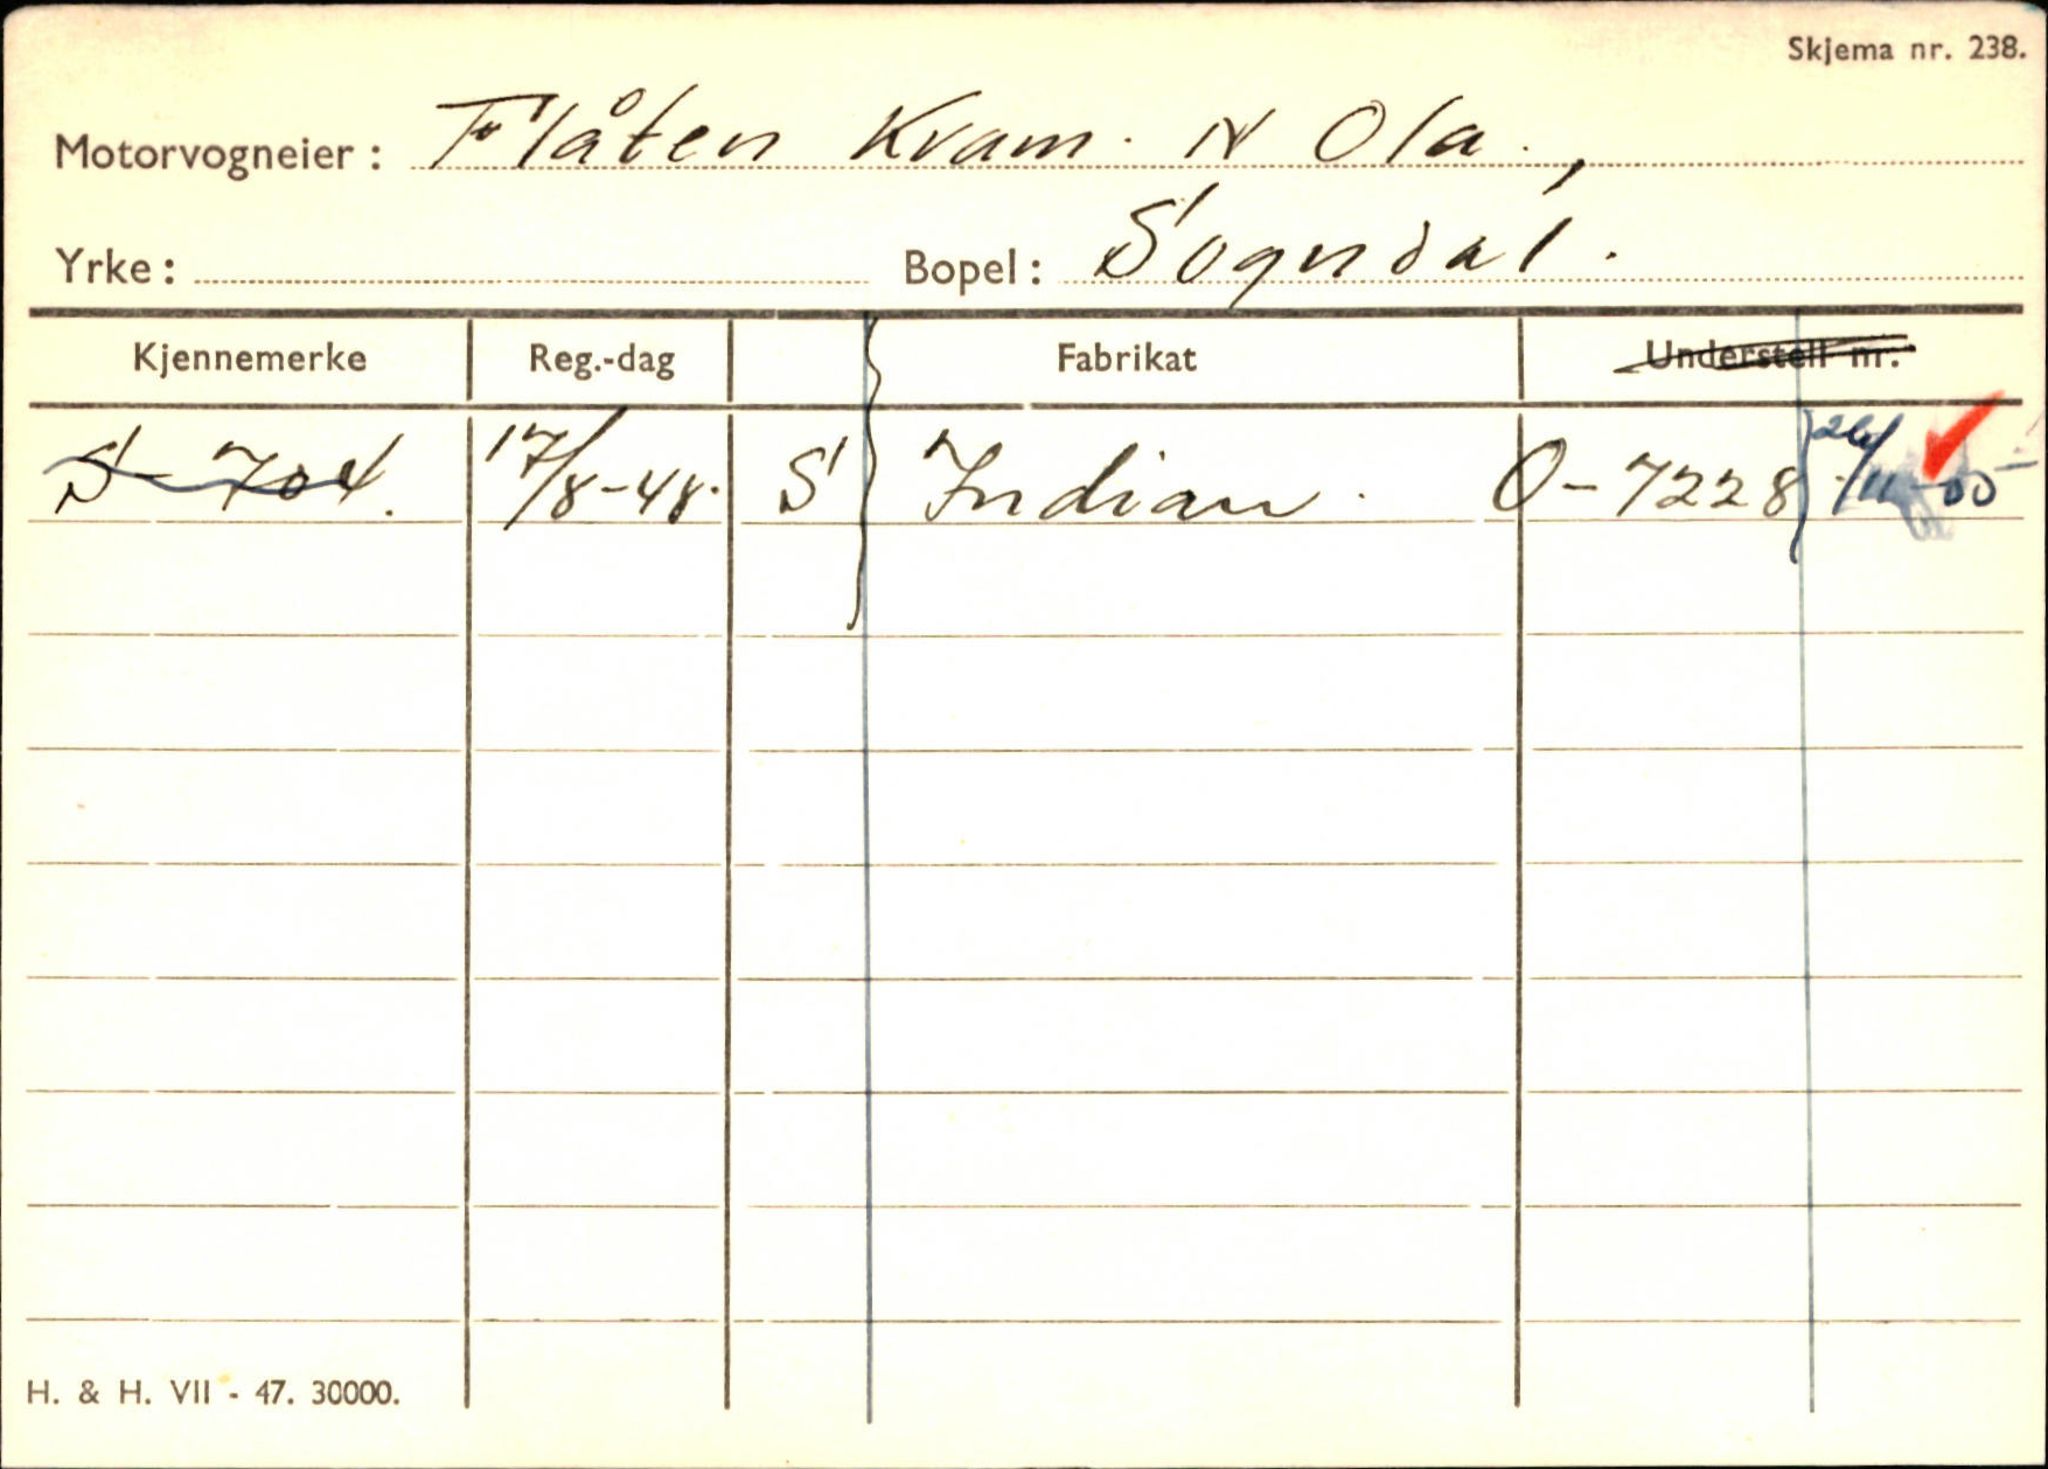 Skjema nr. 238.
Motorvogneier: Flåten Kvam. N Ola.,
Yrke: Bopel: Sogndal.
Kjennemerke Reg.-dag Fabrikat Understell nr.
S-704. 17/8-48. S Indian. O-7228
H. & H. VII - 47. 30000.